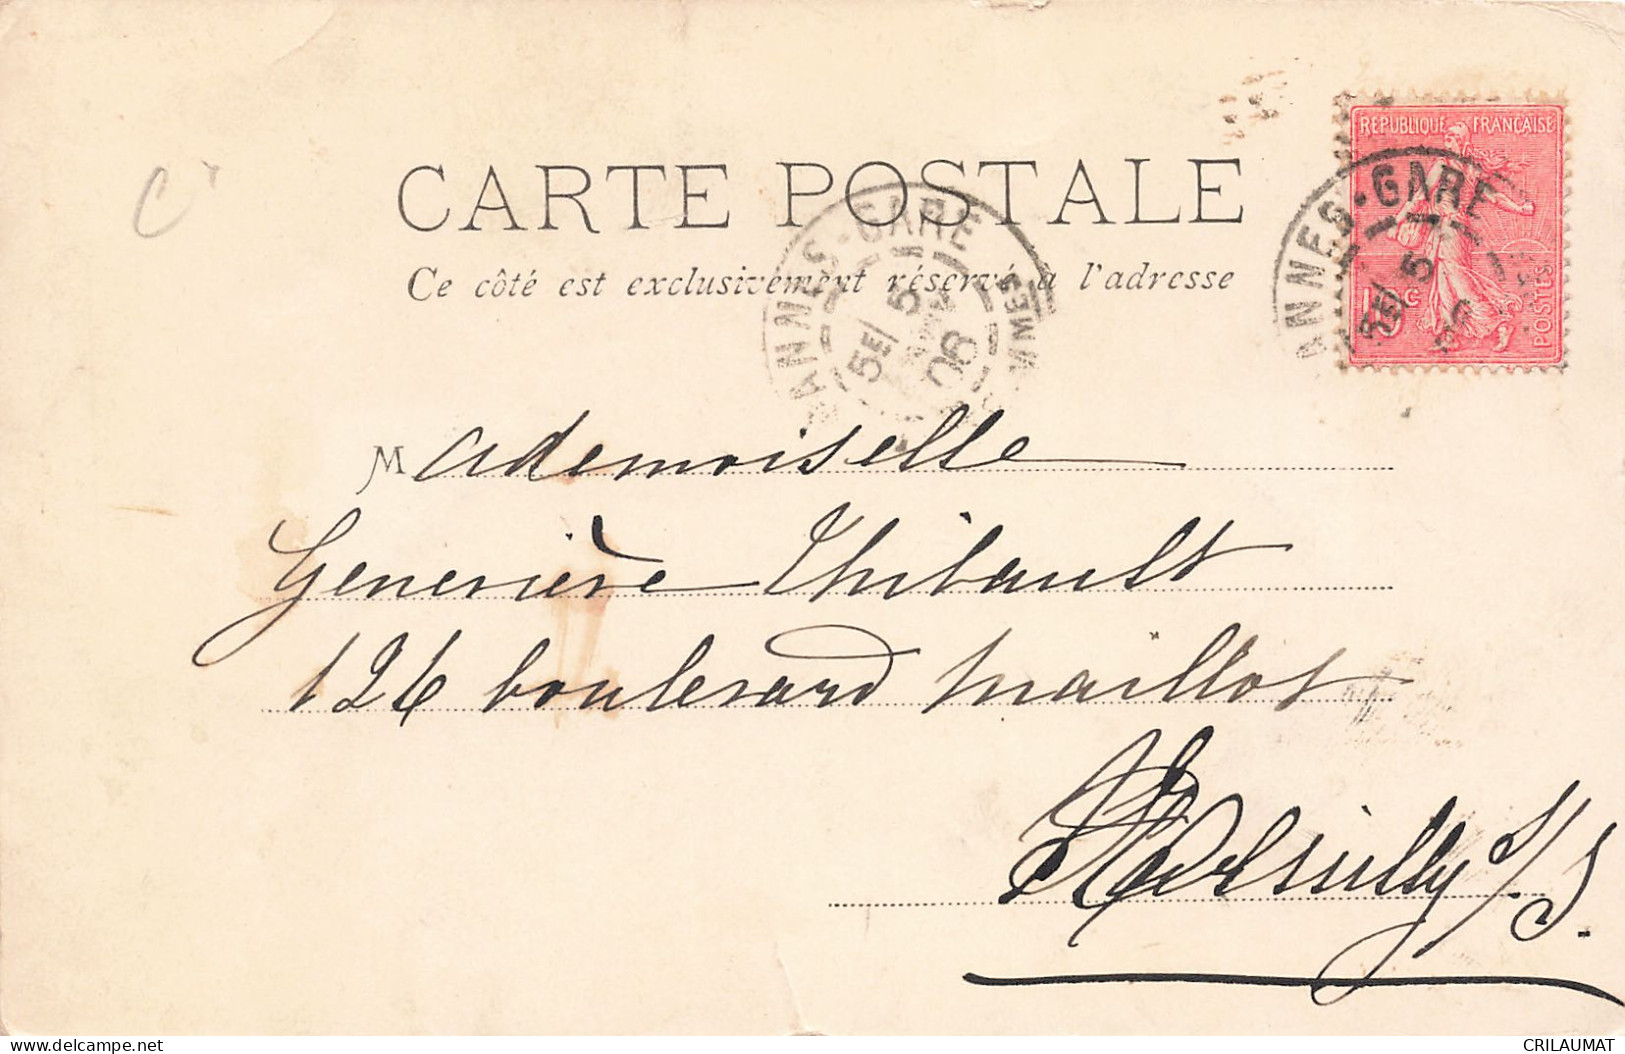 REPUBLIQUE FRANÇAISE
10c
POSTES
CARTE POSTALE
Ce côté est exclusivement réservé à l'adresse
ANNES-GARE
5E/ 5
VANNES-GARE
5E/ 5
06
Mademoiselle
Geneviève Thibault
126 boulevard Maillot
Neuilly s/S.
delcampe.net
CRILAUMAT